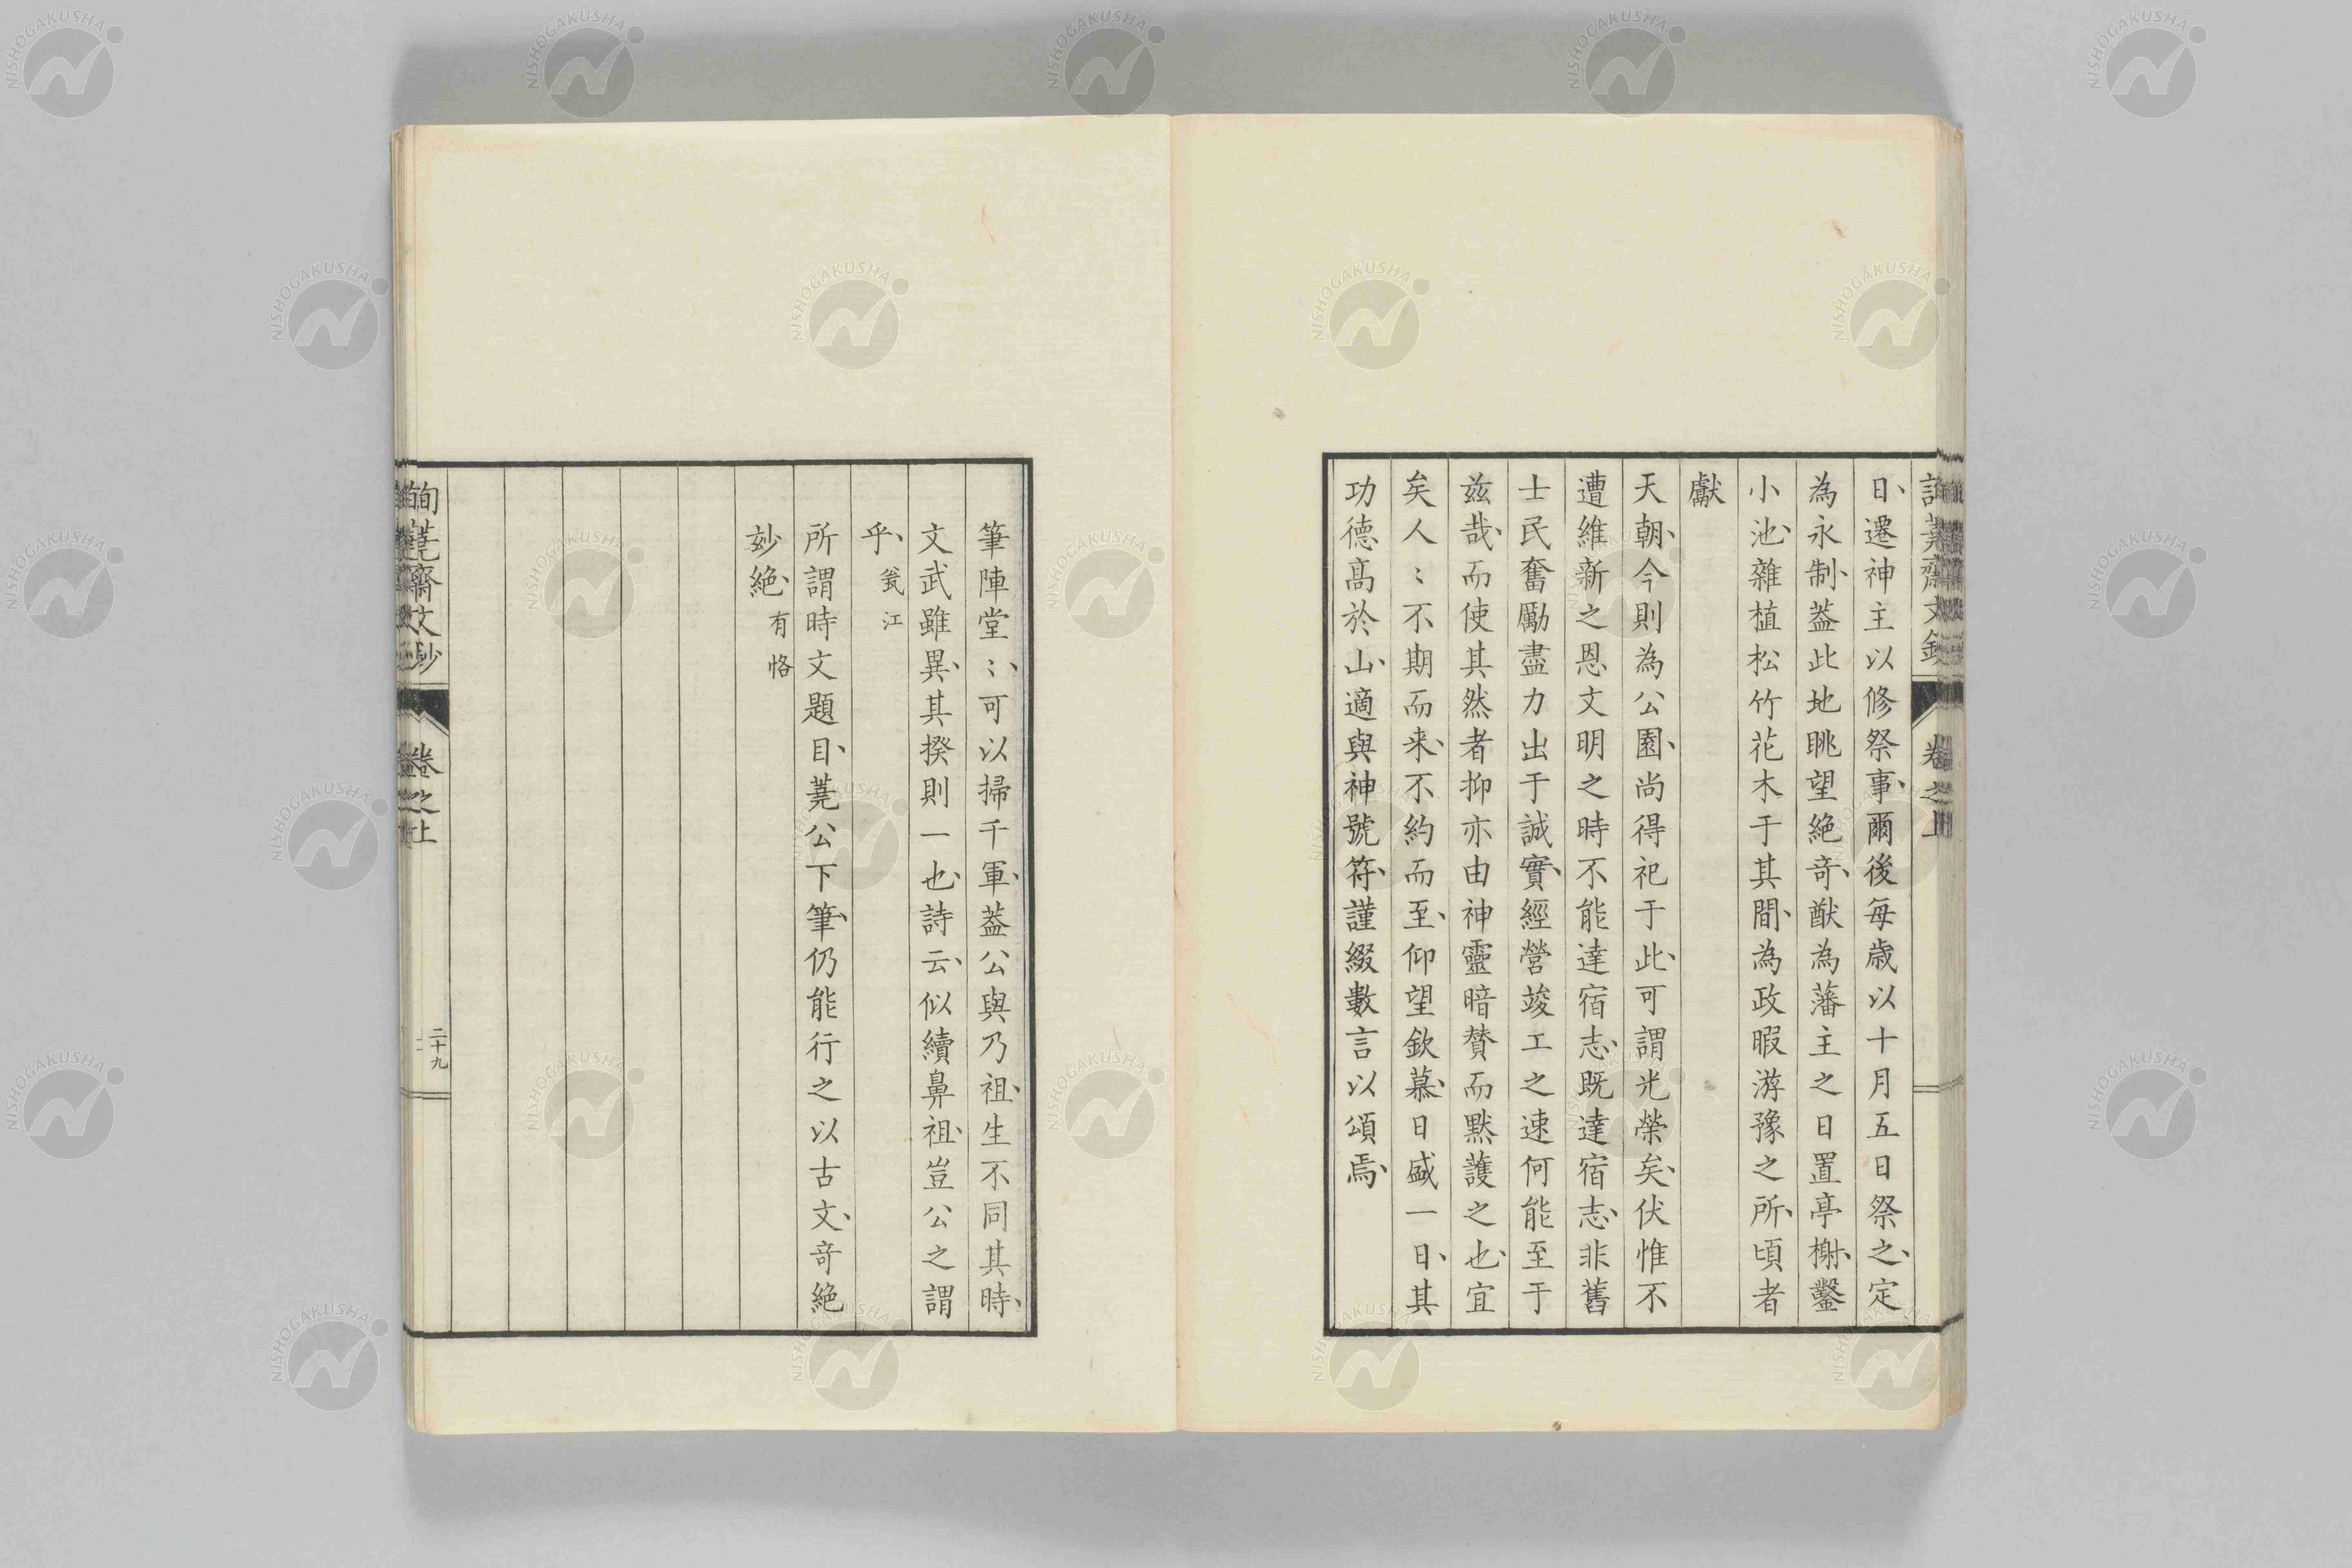 日、遷神主以修祭事、爾後每歲以十月五日祭之、定
為永制、蓋此地眺望絕奇、猷為藩主之日置亭榭、鑿
小池、雜植松竹花木于其間、為政暇游豫之所、頃者
獻
天朝、今則為公園、尚得祀于此、可謂光榮矣、伏惟不
遭維新之恩文明之時不能達宿志、既達宿志、非舊
士民奮勵盡力出于誠實、經營竣工之速何能至于
茲哉、而使其然者抑亦由神靈暗贊而默護之也、宜
矣人〻不期而来、不約而至、仰望欽慕、日盛一日、其
功德高於山、適與神號符、謹綴數言以頌焉、
筆陣堂〻、可以掃千軍、蓋公與乃祖、生不同其時、
文武雖異、其揆則一也、詩云、似續鼻祖、豈公之謂
乎、瓮江
所謂時文題目、蕘公下筆、仍能行之以古文、奇絕
妙絕、有恪
詢蕘齋文鈔
卷之上
二十九
NISHOGAKUSHA